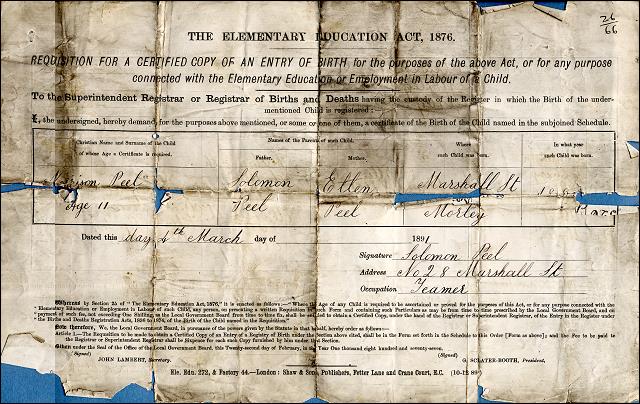 26
66
THE ELEMENTARY EDUCATION ACT, 1876.
REQUISITION FOR A CERTIFIED COPY OF AN ENTRY OF BIRTH for the purposes of the above Act, or for any purpose
connected with the Elementary Education or Employment in Labour of a Child.
To the Superintendent Registrar or Registrar of Births and Deaths having the custody of the Register in which the Birth of the under-
mentioned Child is registered:—
I, the undersigned, hereby demand, for the purposes above mentioned, or some or one of them, a certificate of the Birth of the Child named in the subjoined Schedule.
Christian Name and Surname of the Child
of whose Age a Certificate is required.
Names of the Parents of such Child.
Father.
Mother.
Where
such Child was born.
In what year
such Child was born.
Peel
Age 11
Solomon
Peel
Ellen
Peel
Marshall St
Morley
Dated this day 4th March day of 1891
Signature Solomon Peel
Address No 28 Marshall St
Occupation Teamer
Whereas by Section 25 of "The Elementary Education Act, 1876," it is enacted as follows:—"Where the Age of any Child is required to be ascertained or proved for the purposes of this Act, or for any purpose connected with the
Elementary Education or Employment in Labour of such Child, any person, on presenting a written Requisition in such Form and containing such Particulars as may be from time to time prescribed by the Local Government Board, and on
payment of such fee, not exceeding One Shilling, as the Local Government Board from time to time fix, shall be entitled to obtain a Certified Copy, under the hand of the Registrar or Superintendent Registrar, of the Entry in the Register under
the Births and Deaths Registration Acts, 1836 to 1874, of the Birth of the Child named in the Requisition."
Now therefore, We, the Local Government Board, in pursuance of the powers given by the Statute in that behalf, hereby order as follows:—
Article 1.—The Requisition to be made to obtain a Certified Copy of an Entry of a Register of Birth under the Section above cited, shall be in the Form set forth in the Schedule to this Order [Form as above]; and the Fee to be paid to
the Registrar or Superintendent Registrar shall be Sixpence for each such Copy furnished by him under that Section.
Given under the Seal of the Office of the Local Government Board, this Twenty-second day of February, in the Year One thousand eight hundred and seventy-seven.
(Signed)
JOHN LAMBERT, Secretary.
(Signed)
G. SCLATER-BOOTH, President.
Ele. Edn. 272, & Factory 44.—London: Shaw & Sons, Publishers, Fetter Lane and Crane Court, E.C. (10-12-89)